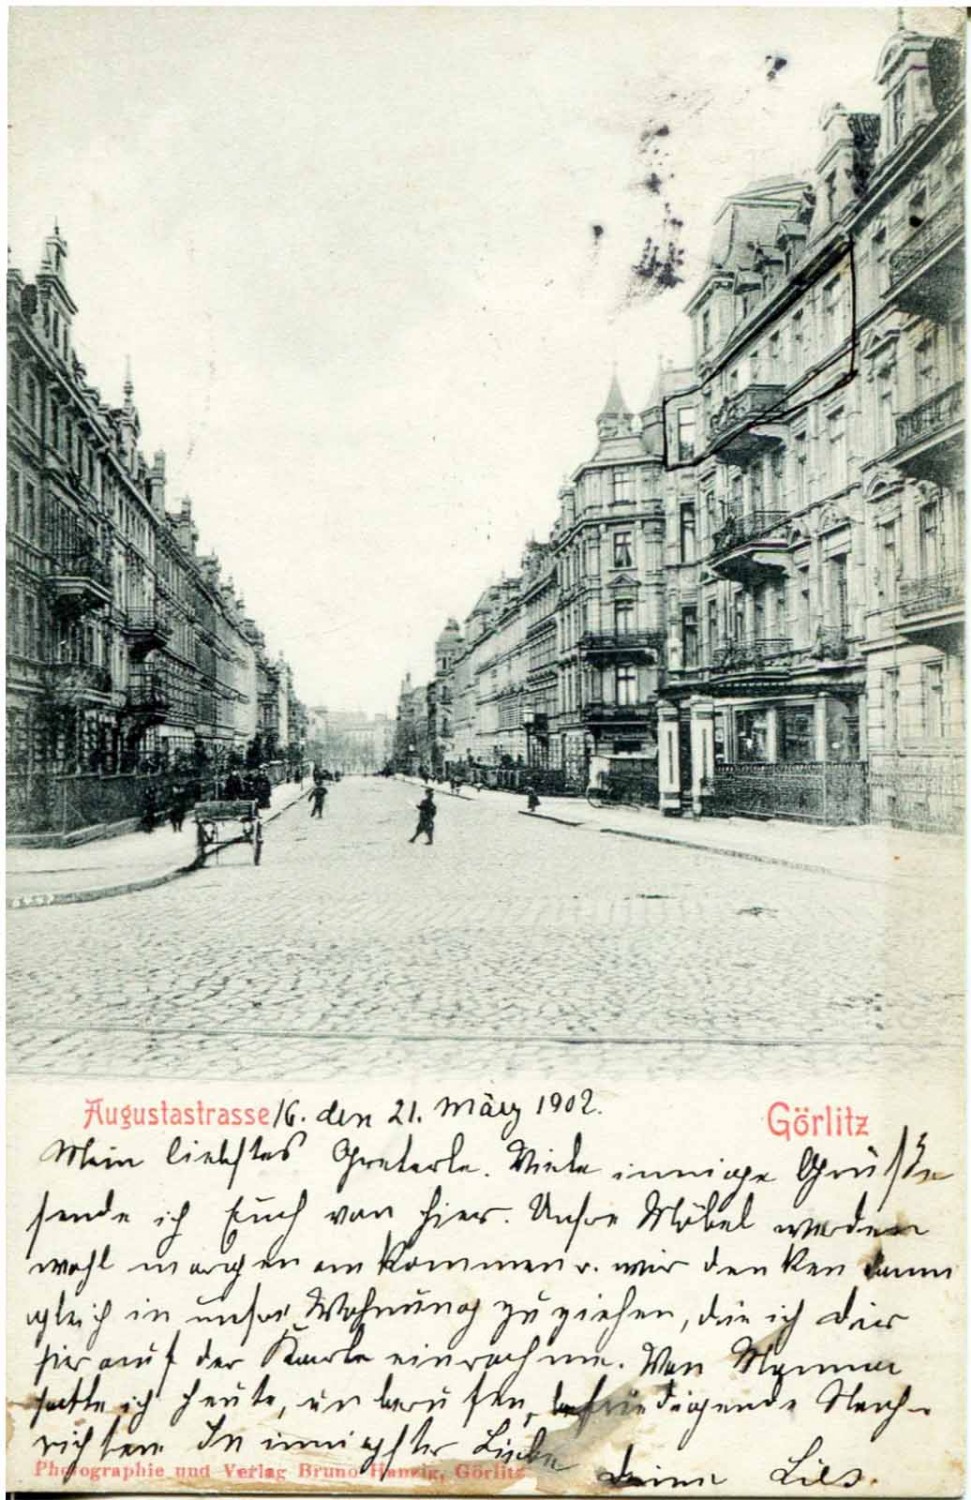 Augustastrasse 16. den 21. März 1902. Görlitz
Mein liebstes Greterle. Viele innige Grüße
sende ich Euch von hier. Unsre Möbel werden
wohl morgen an kommen u. wir denken dann
gleich in unsre Wohnung zu ziehen, die ich Dir
hier auf der Karte einrahme. Von
hatte ich heute, befriedigende Nach-
richten In innigster Liebe
Photographie und Verlag Bruno Hanzig, Görlitz
Deine Lies.